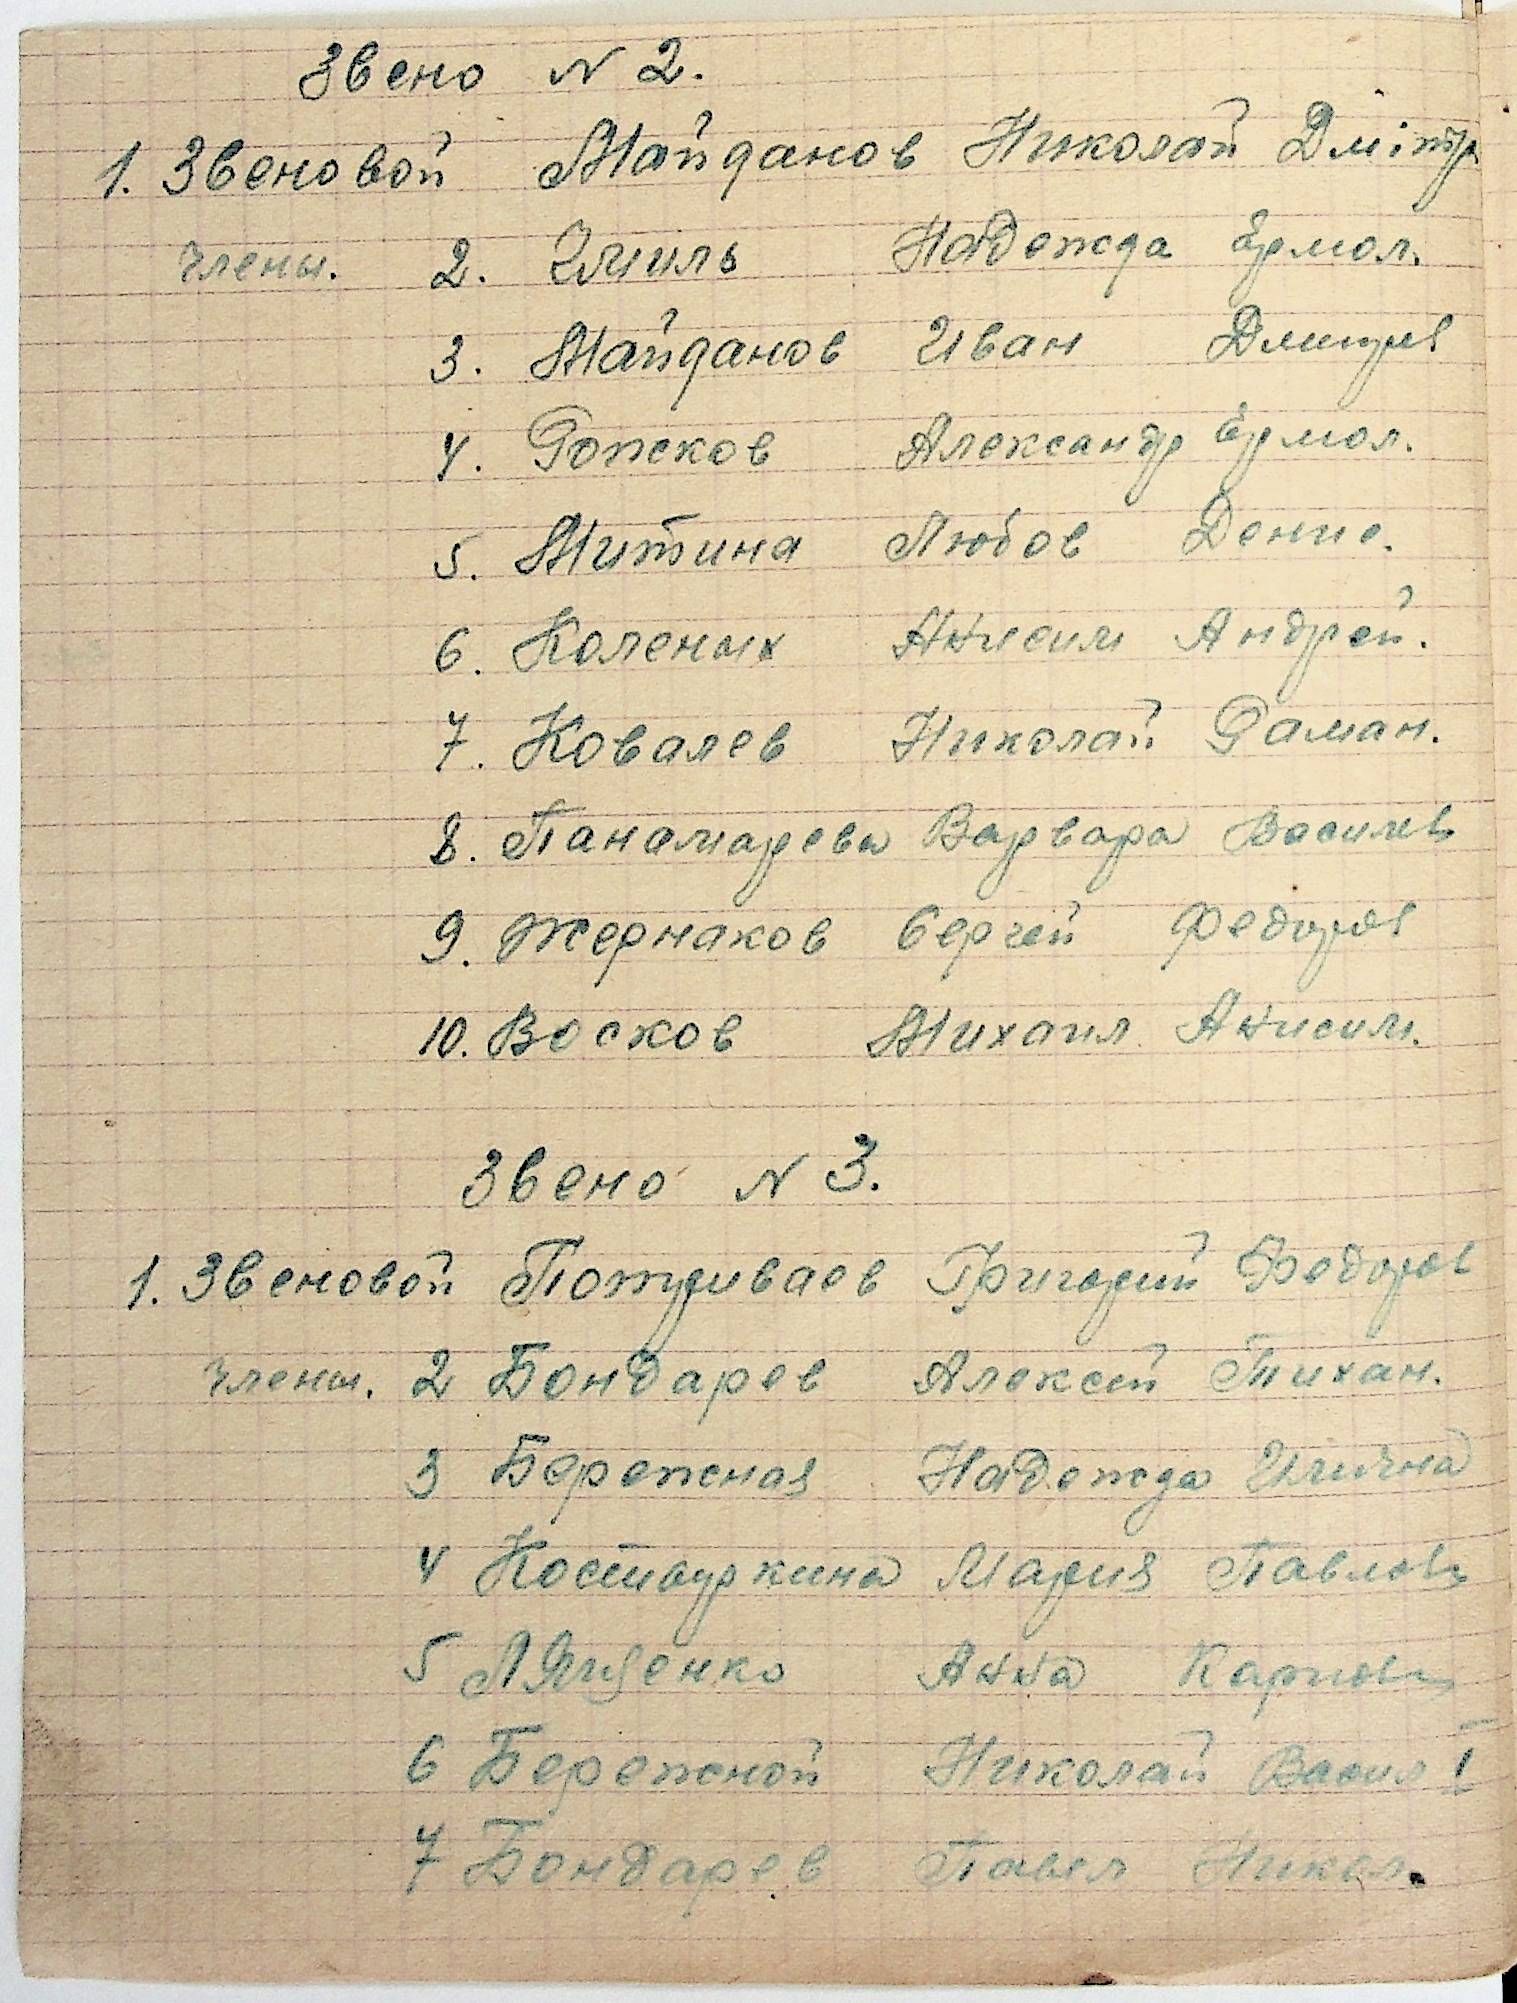 Звено N 2.
1. Звеновой Майданов Николай Дмiтр
Члены. 2. Чмиль Надежда Ермол.
3. Майданов Иван Дмитрев
4. Рожков Александр Ермол.
5. Митина Любов Дение.
6. Коленых Анисим Андрей.
7. Ковалев Николай Раман.
8. Панамарева Варвара Василев
9. Жернаков Сергей Федоров
10. Восков Михаил Анисим.
Звено N 3.
1. Звеновой Пожриваев Григорий Федоров
Члены. 2 Бондарев Алексей Тихан.
3 Бережная Надежда
4 Мария Павлов
5 Анна Карпов
6 Бережной Николай Васил
7 Бондарев Павел Никол.